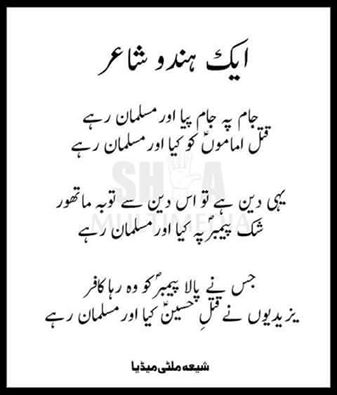 ایک ہندو شاعر
جام پہ جام پیا اور مسلمان رہے
قتل اماموںؑ کو کیا اور مسلمان رہے
یہی دین ہے تو اس دین سے توبہ ماتھور
شک پیمبرؐ پہ کیا اور مسلمان رہے
جس نے پالا پیمبرؐ کو وہ رہا کافر
یزیدیوں نے قتلِ حسینؑ کیا اور مسلمان رہے
SHIA
MULTIMEDIA
شیعہ ملٹی میڈیا